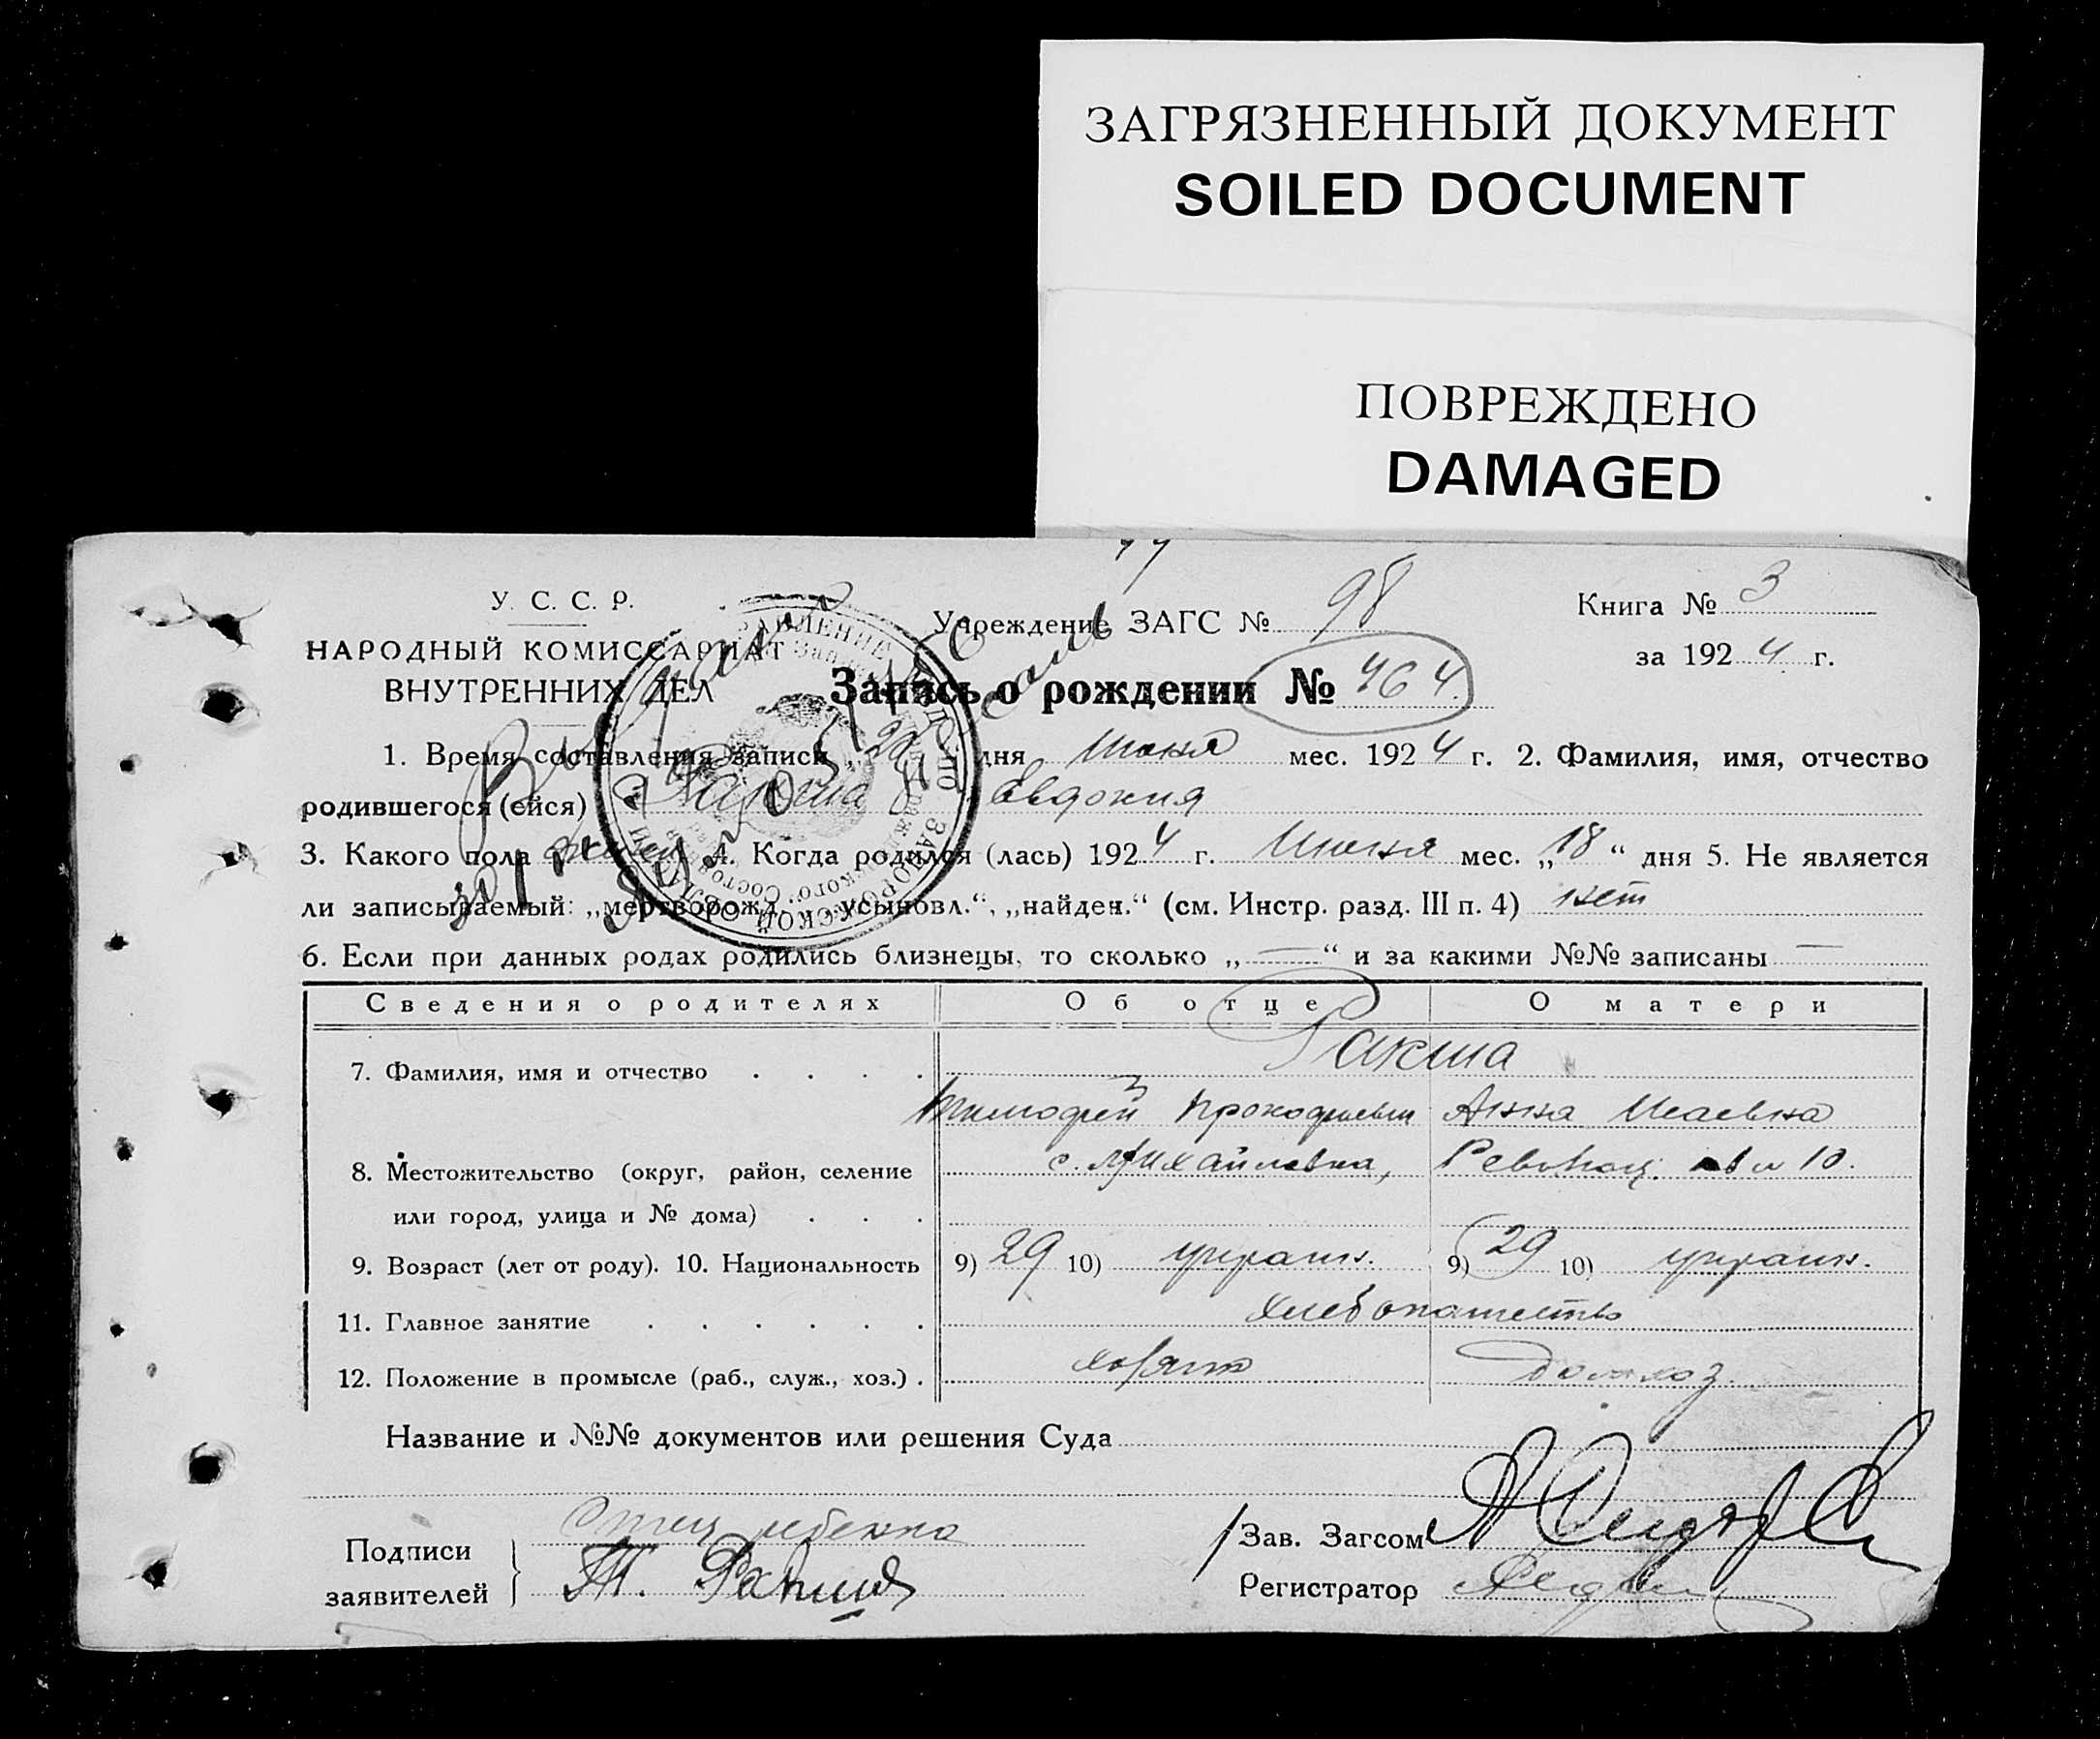 ЗАГРЯЗНЕННЫЙ ДОКУМЕНТ
SOILED DOCUMENT
ПОВРЕЖДЕНО
DAMAGED
У. С. С. Р.
НАРОДНЫЙ КОМИССАРИАТ
ВНУТРЕННИХ ДЕЛ
Учреждение ЗАГС № 98
Книга № 3
за 1924 г.
Запись о рождении № 464.
1. Время составления записи „20 дня Июня мес. 1924 г. 2. Фамилия, имя, отчество
родившегося (ейся) Ракша Евдокия
3. Какого пола женск 4. Когда родился (лась) 1924 г. Июня мес. „18“ дня 5. Не является
ли записываемый: „мертворожд.“, „усыновл.“, „найден.“ (см. Инстр. разд. III п. 4) нет
6. Если при данных родах родились близнецы, то сколько „—“ и за какими №№ записаны —
Сведения о родителях Об отце О матери
7. Фамилия, имя и отчество Ракша
Тимофей Прокофиевич Анна Исаевна
8. Местожительство (округ, район, селение с. Михайловка, 10.
или город, улица и № дома)
9. Возраст (лет от роду). 10. Национальность 9) 29 10) украин. 9) 29 10) украин.
11. Главное занятие хлебопашество
12. Положение в промысле (раб., служ., хоз.) хозяин домхоз.
Название и №№ документов или решения Суда
Подписи заявителей Отец ребенка
Т. Ракша
Зав. Загсом
Регистратор